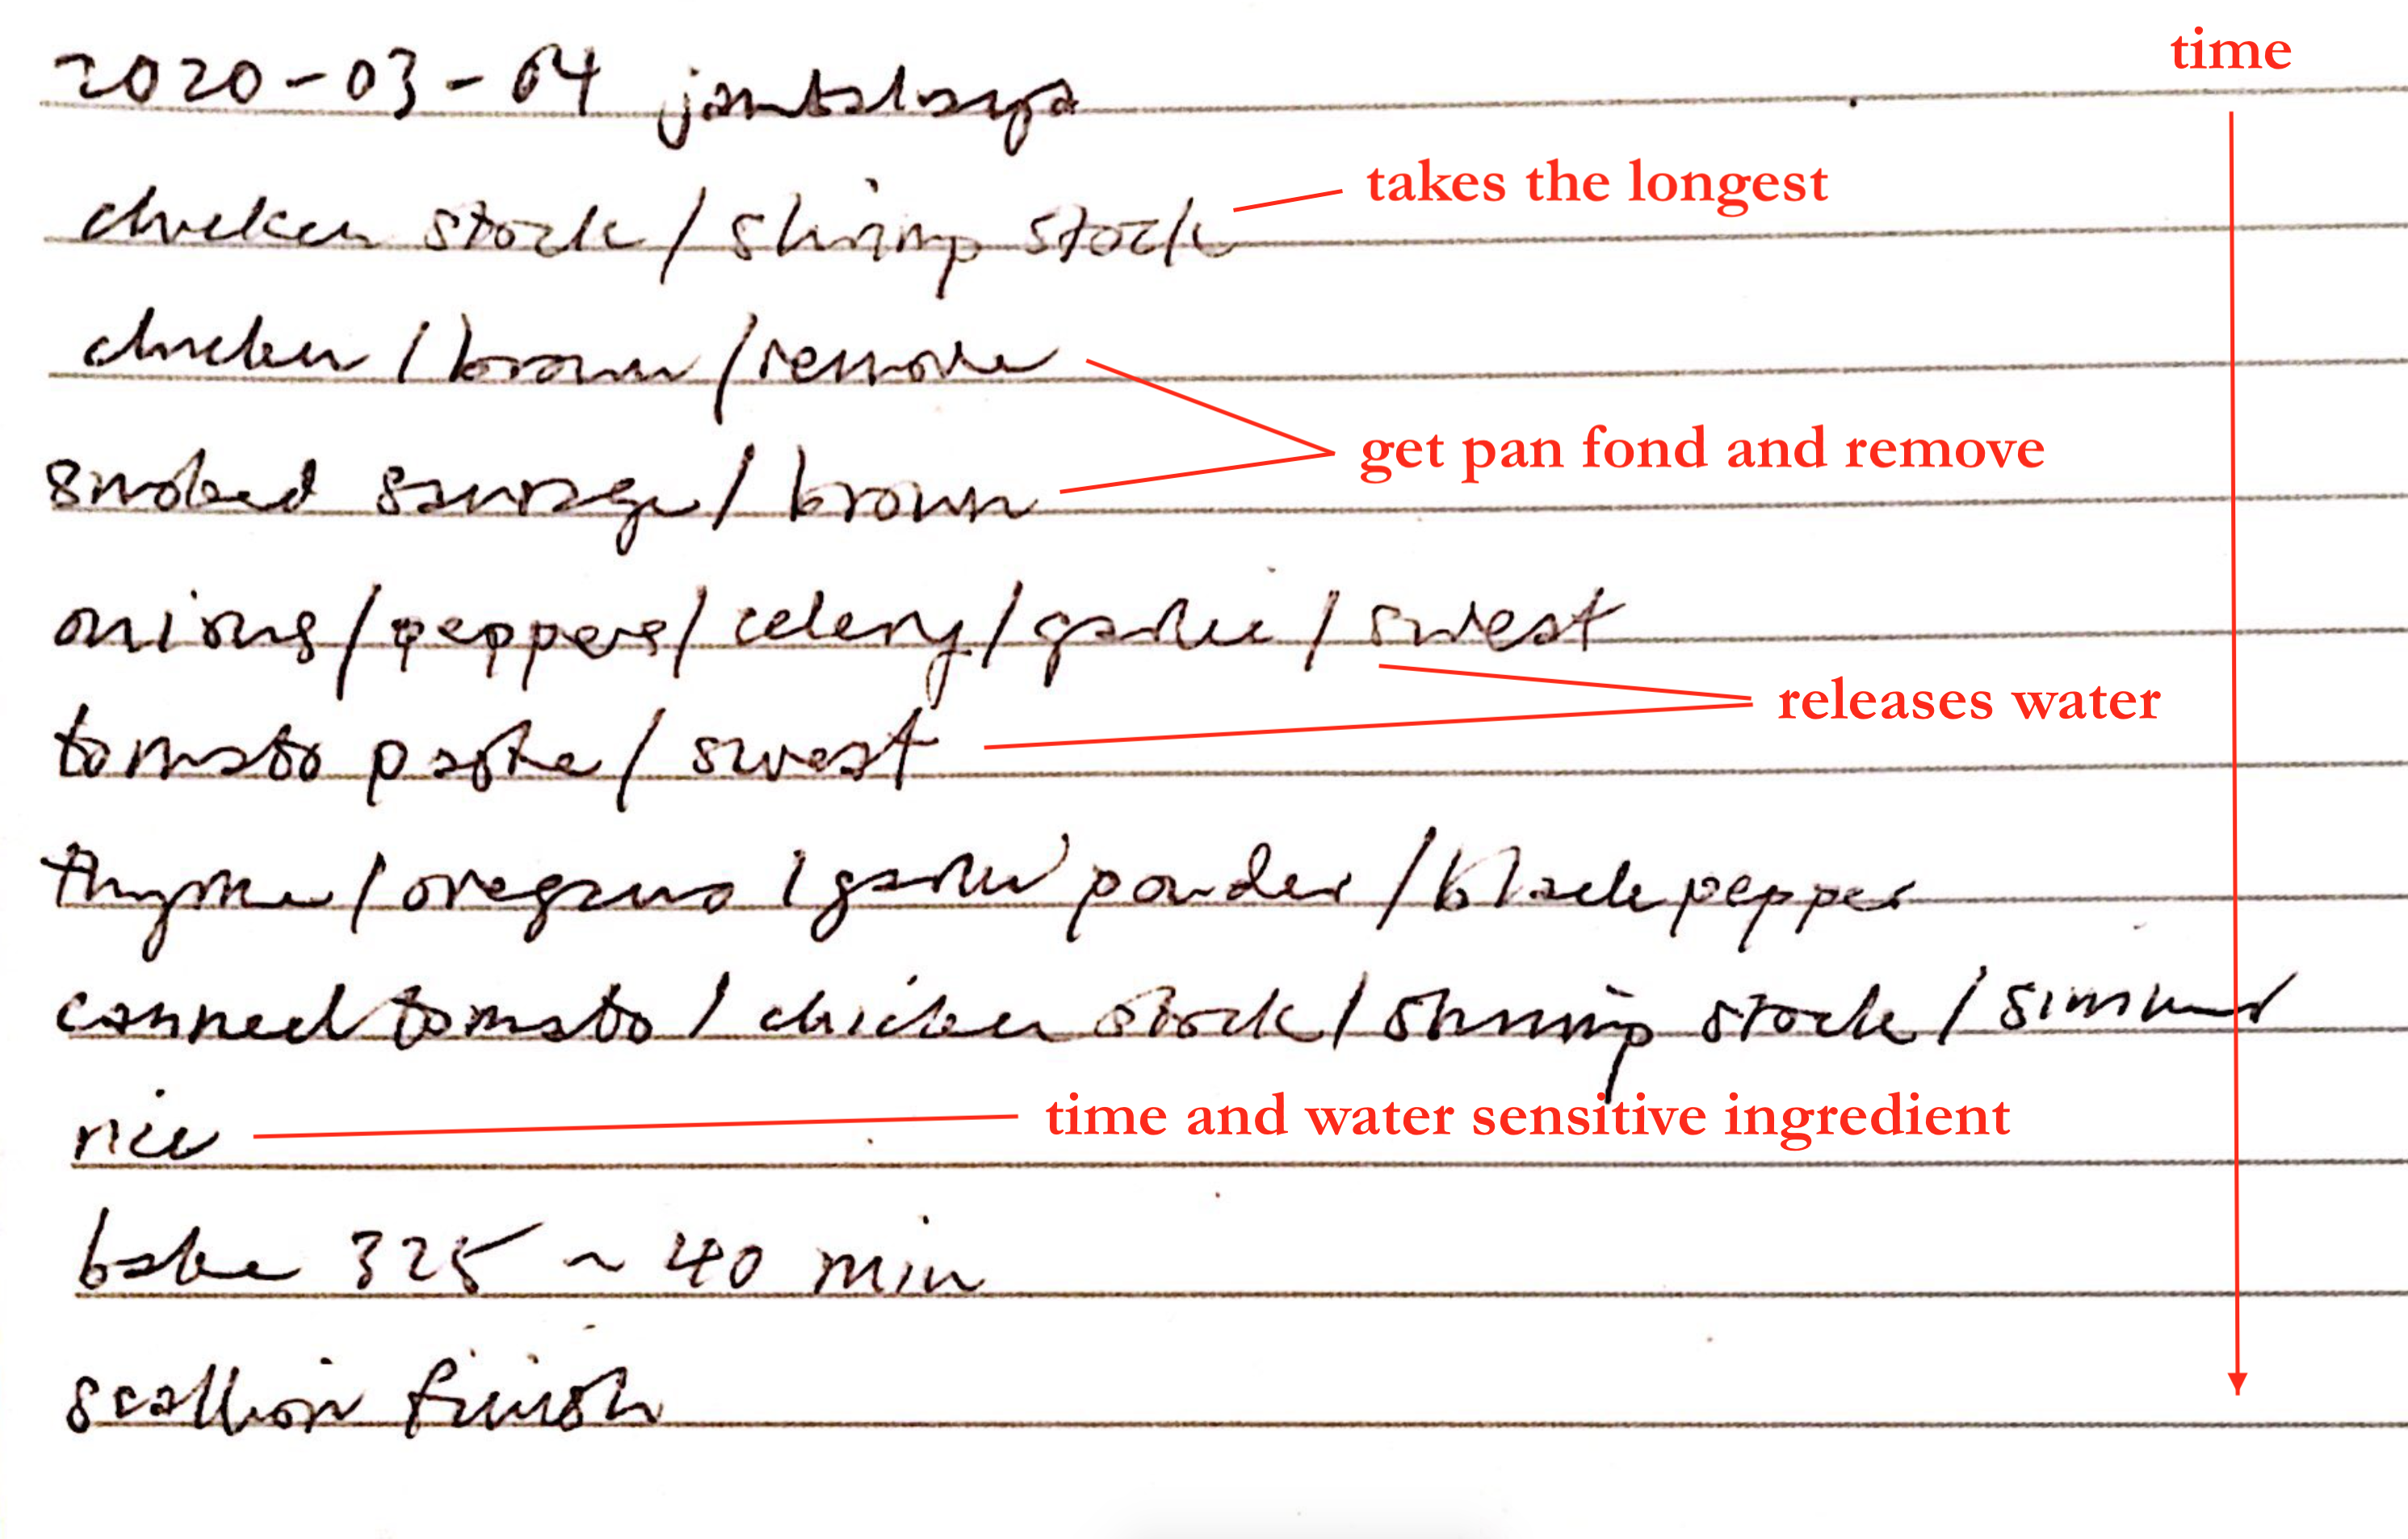 time
2020-03-04 jambalaya
takes the longest
chicken stock / shrimp stock
chicken / brown / remove
get pan fond and remove
smoked sausage / brown
onions / peppers / celery / garlic / sweat
releases water
tomato paste / sweat
thyme / oregano / garlic powder / black pepper
canned tomato / chicken stock / shrimp stock / simmer
rice
time and water sensitive ingredient
bake 325 ~ 40 min
scallion finish